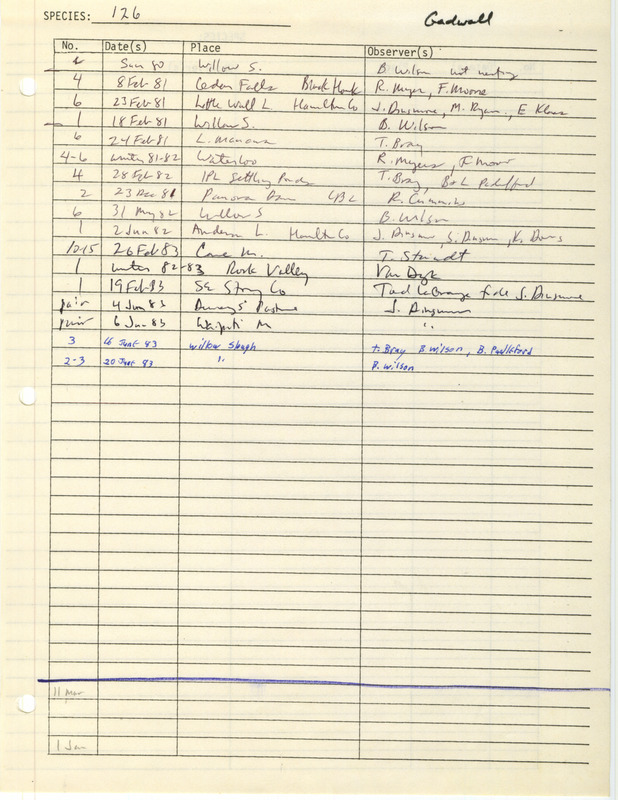 SPECIES: 126 Gadwall
No. Date(s) Place Observer(s)
Sum 80 Willow S. B. Wilson not nesting
4 8 Feb 81 Cedar Falls Black Hawk R. Myers, F. Moore
6 23 Feb 81 Little Wall L Hamilton Co J. Dinsmore, M. Ryan, E Klaas
1 18 Feb 81 Willow S. B. Wilson
6 24 Feb 81 L. Manawa T. Bray
4-6 winter 81-82 Waterloo R. Myers, F. Moore
4 28 Feb 82 IPL Settling Ponds T. Bray, B + L Padelford
2 23 Dec 81 Panora CBC R. Cummins
6 31 May 82 Willow S B. Wilson
1 2 Jun 82 Anderson L. Hamilton Co J. Dinsmore, S. Dinsmore, K. Davis
10-15 26 Feb 83 Cone M. T. Staudt
1 winter 82-83 Rock Valley Van Dyk
1 19 Feb 83 SE Story Co Tad LaGrange fide J. Dinsmore
pair 4 Jun 83 Deweys' Pasture J. Dinsmore
pair 6 Jun 83 M "
3 16 June 83 Willow Slough T. Bray B Wilson, B. Padelford
2-3 20 June 83 " B. Wilson
11 Mar
1 Jan